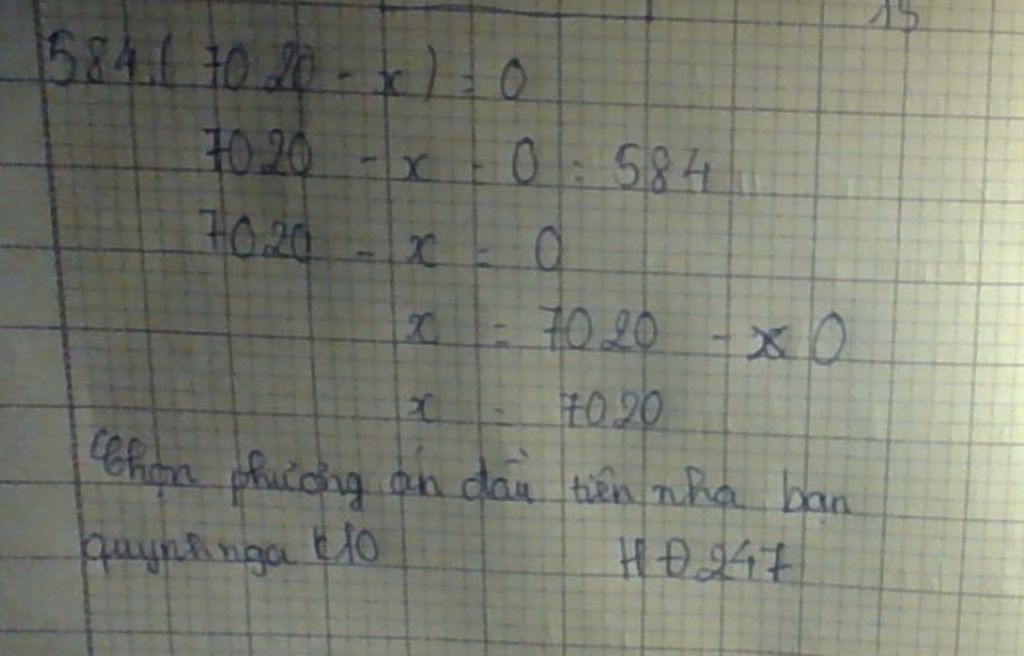 15
584.( 7020 - x ) = 0
7020 - x = 0 : 584
7020 - x = 0
x = 7020 - 0
x = 7020
Chọn phương án đầu tiên nha bạn
quynhnga k10 HĐ247